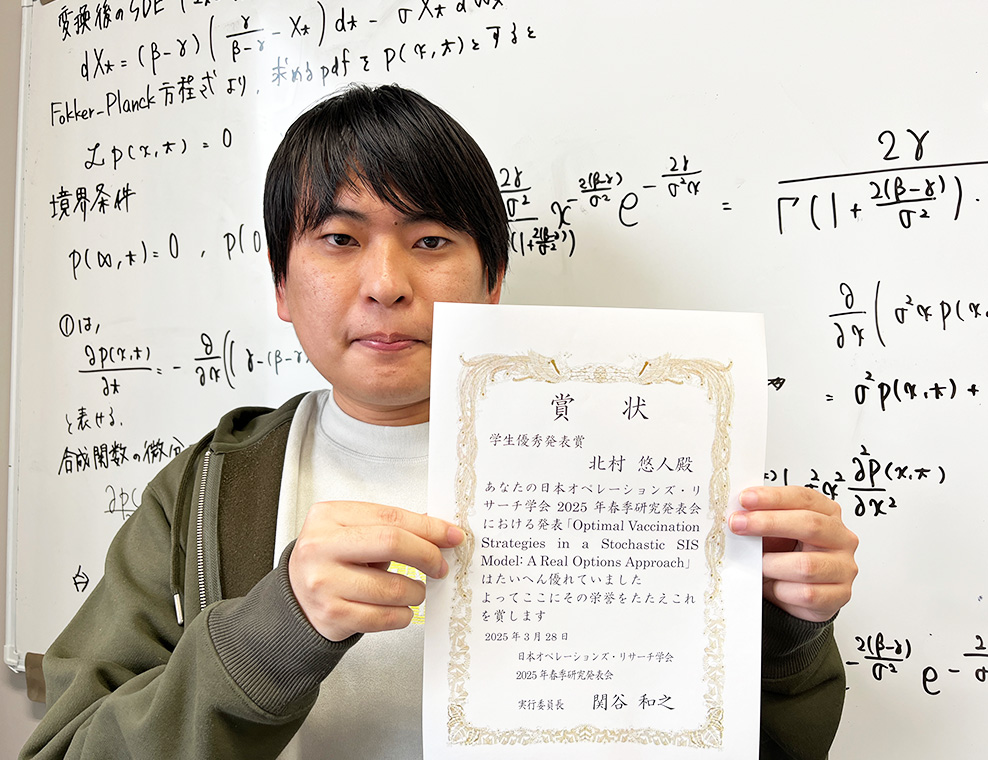 変換後の SDE
dX* = (β-γ) ( γ/(β-γ) - X* ) d* - σX* dW*
Fokker-Planck 方程式 より, 求める pdf を p(x,*) とすると
ℒp(x,*) = 0
境界条件
p(∞,*) = 0 , p(0
①は,
∂p(x,*)/∂* = - ∂/∂x (( γ-(β-γ)
と表せる.
合成関数の微分
x^(-2(β-γ)/σ²) e^(-2γ/(σ²x)) =
2γ
Γ(1+ 2(β-γ)/σ²) ·
∂/∂x ( σ²xp(x,
= σ²p(x,*) +
∂²p(x,*)/∂x²
2(β-γ)/σ² e
賞 状
学生優秀発表賞
北村 悠人殿
あなたの日本オペレーションズ・リ
サーチ学会 2025 年春季研究発表会
における発表「Optimal Vaccination
Strategies in a Stochastic SIS
Model: A Real Options Approach」
はたいへん優れていました
よってここにその栄誉をたたえこれ
を賞します
2025 年 3 月 28 日
日本オペレーションズ・リサーチ学会
2025 年春季研究発表会
実行委員長 関谷 和之